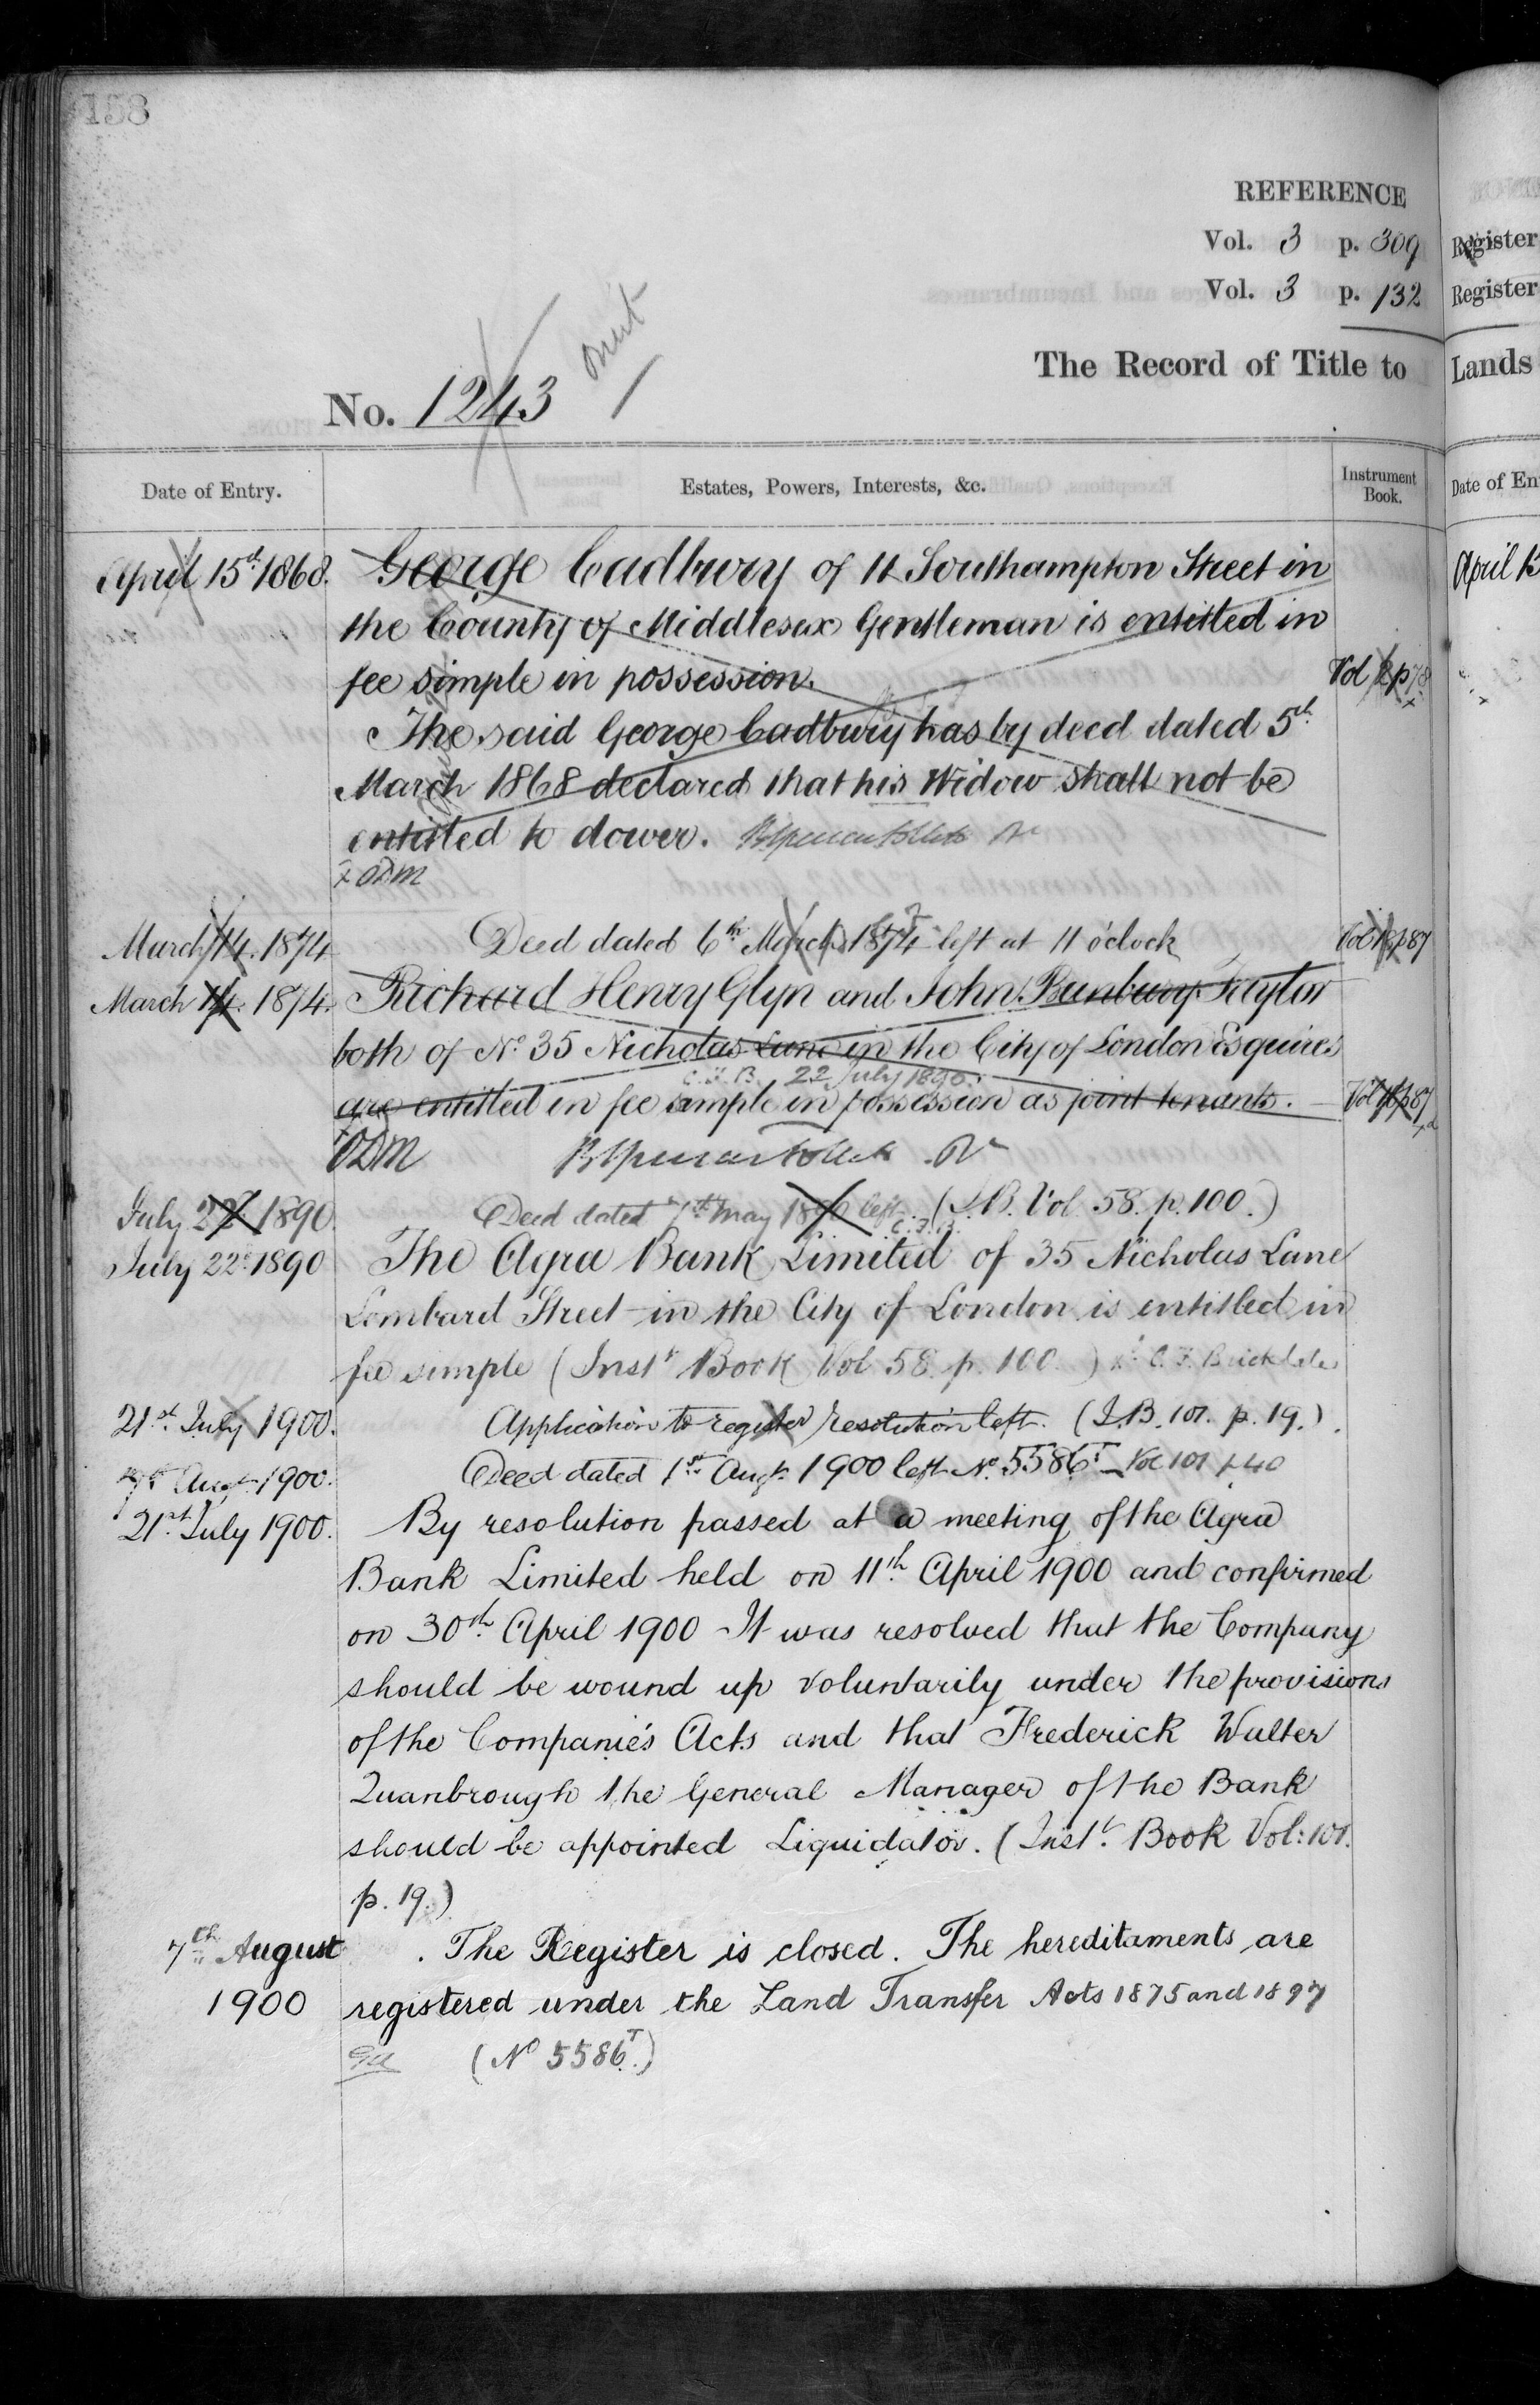 158
REFERENCE
Vol. 3 p. 309
Vol. 3 p. 132
The Record of Title to
No. 1243 omit
Date of Entry. Estates, Powers, Interests, &c. Instrument Book.
April 15th 1868. George Cadbury of 12 Southampton Street in
the County of Middlesex Gentleman is entitled in
fee simple in possession. Vol p 78
The said George Cadbury has by deed dated 5th
March 1868 declared that his Widow shall not be
entitled to dower.
March 14. 1874 Deed dated 6th March 1874 left at 11 o'clock Vol p 87
March 14. 1874. Richard Henry Glyn and John Bunbury Taylor
both of No 35 Nicholas Lane in the City of London Esquires
C.F.B. 22 July 1890.
are entitled in fee simple in possession as joint tenants. Vol p 87
July 22d 1890. Deed dated 7th May 1890 left. (I.B. Vol. 58. p. 100.)
C.F.B.
July 22d 1890 The Agra Bank Limited of 35 Nicholas Lane
Lombard Street in the City of London is entitled in
fee simple (Inst. Book Vol 58. p. 100.) C. F. Brickdale
21st July 1900. Application to register resolution left. (I.B. 101. p. 19.).
7th Augt. 1900. Deed dated 1st Augt. 1900 left No. 5586T Vol 101 p 40
21st July 1900. By resolution passed at a meeting of the Agra
Bank Limited held on 11th April 1900 and confirmed
on 30th April 1900 It was resolved that the Company
should be wound up voluntarily under the provisions
of the Companie's Acts and that Frederick Walter
Quanbrough the General Manager of the Bank
should be appointed Liquidator. (Inst. Book Vol: 101.
p. 19.)
7th August . The Register is closed. The hereditaments are
1900 registered under the Land Transfer Acts 1875 and 1897
(No 5586T.)
Register
Register
Lands
Date of En
April 15